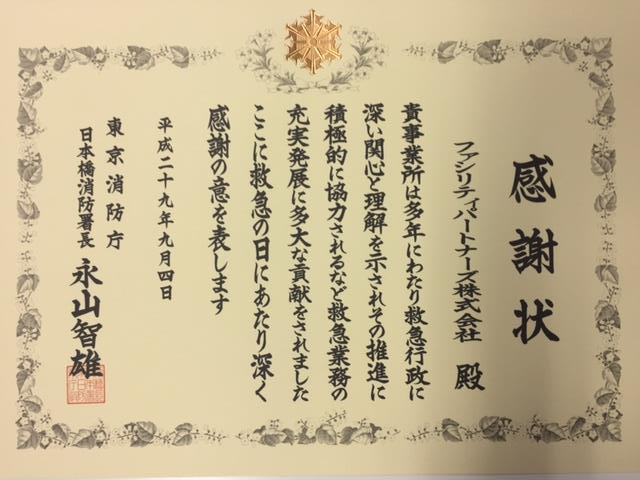 感謝状
ファシリティパートナーズ株式会社 殿
貴事業所は多年にわたり救急行政に
深い関心と理解を示されその推進に
積極的に協力されるなど救急業務の
充実発展に多大な貢献をされました
ここに救急の日にあたり深く
感謝の意を表します
平成二十九年九月四日
東京消防庁
日本橋消防署長 永山智雄